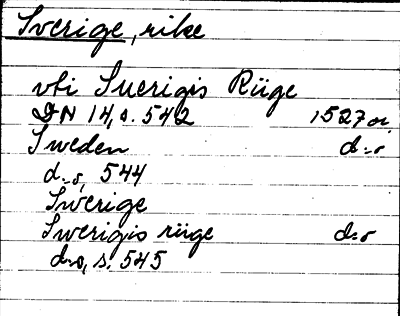 Sverige, rike
vti Suerigis Rüge
DN 14, s. 542 1527 or
Sweden d:o
d:o, 544
Swerige
Swerigis rüge d:o
d:o, s. 545